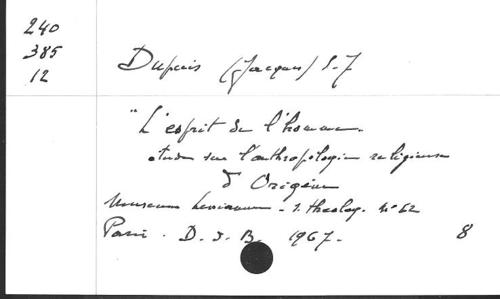 240
385
12
Dupuis (Jacques) S.J
"L'esprit de l'homme.
étude sur l'anthropologie religieuse
d'Origène
Museum Lessianum - S. théolog. n° 62
Paris. D.d.B. 1967. 8